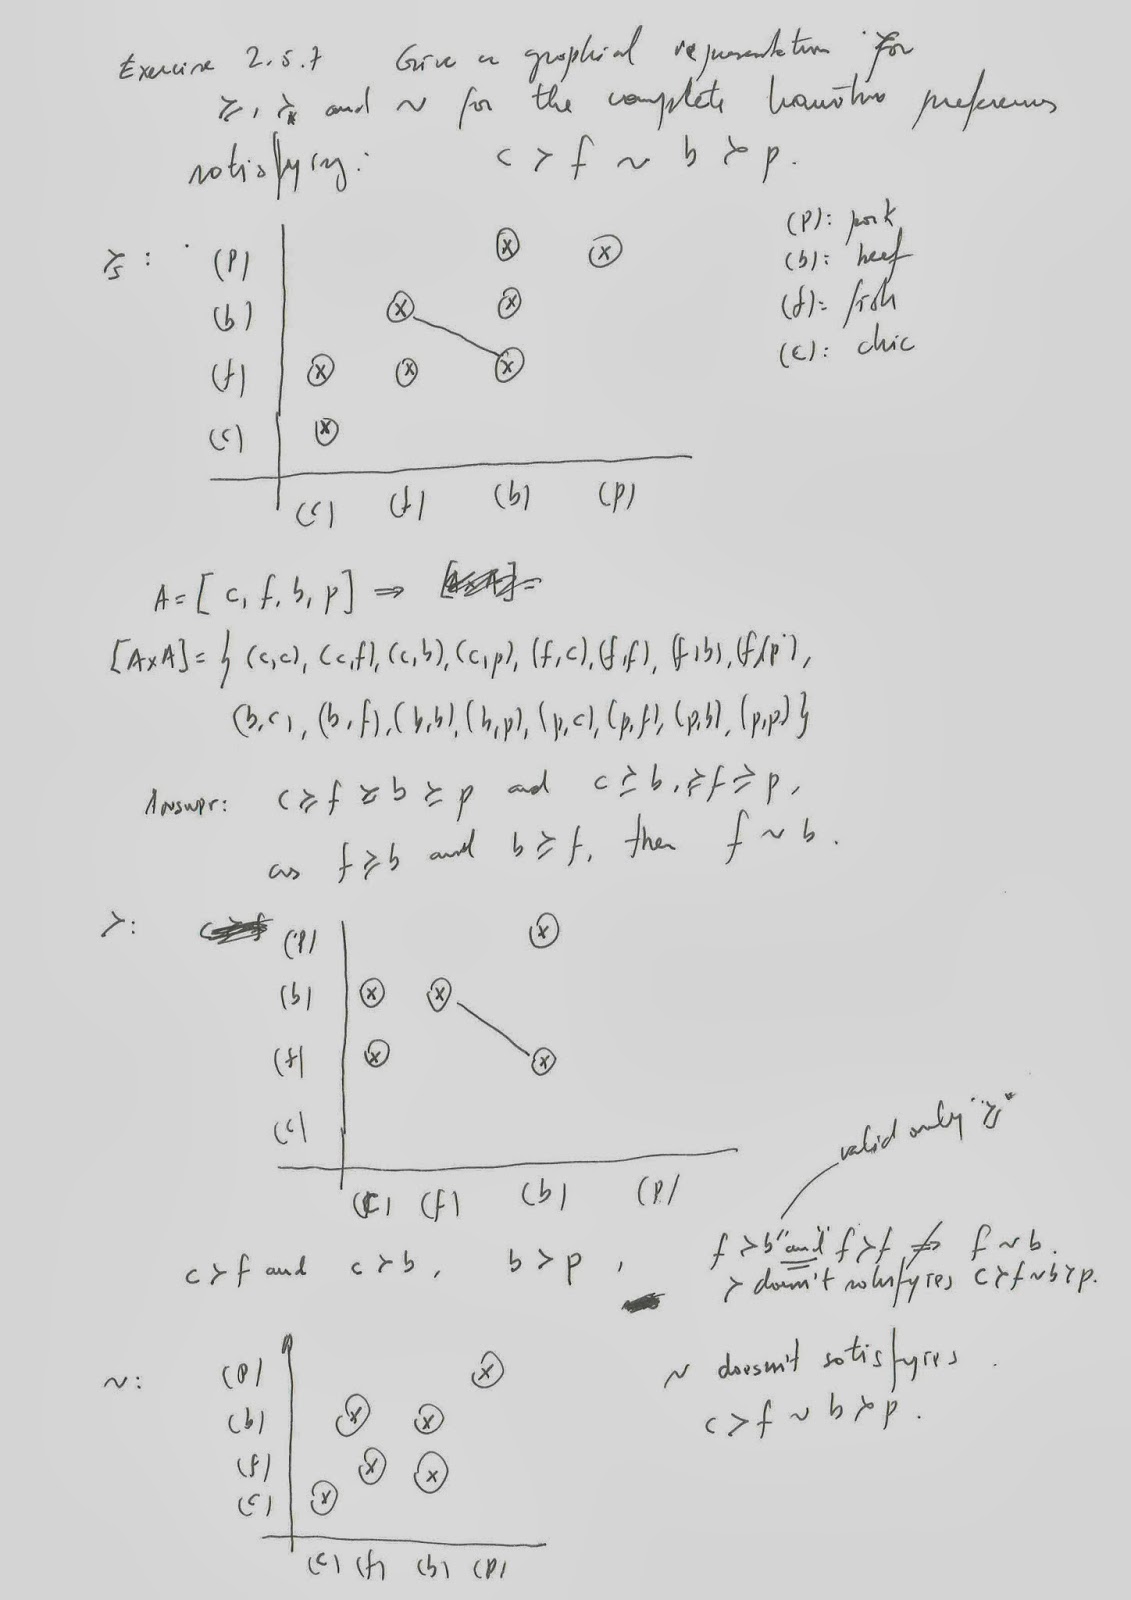 Exercise 2.5.7 Give a graphical representation for
≿, ≻ and ~ for the complete transitive preferences
satisfying: c ≻ f ~ b ≻ p.
(p): pork
(b): beef
(f): fish
(c): chic
≿ :
(p)
(b)
(f)
(c)
(c) (f) (b) (p)
A = [ c, f, b, p ] ⇒
[A×A] = { (c,c), (c,f), (c,b), (c,p), (f,c), (f,f), (f,b), (f,p),
(b,c), (b,f), (b,b), (b,p), (p,c), (p,f), (p,b), (p,p) }
Answer: c ≿ f ≿ b ≿ p and c ≿ b, ≿ f ≿ p,
as f ≿ b and b ≿ f, then f ~ b.
≻:
(p)
(b)
(f)
(c)
(c) (f) (b) (p)
valid only "≿"
c ≻ f and c ≻ b, b ≻ p, f ≻ b "and" f ≻ f ⇏ f ~ b.
≻ doesn't satisfyies c ≻ f ~ b ≻ p.
~:
(p)
(b)
(f)
(c)
(c) (f) (b) (p)
~ doesn't satisfyies.
c ≻ f ~ b ≻ p.